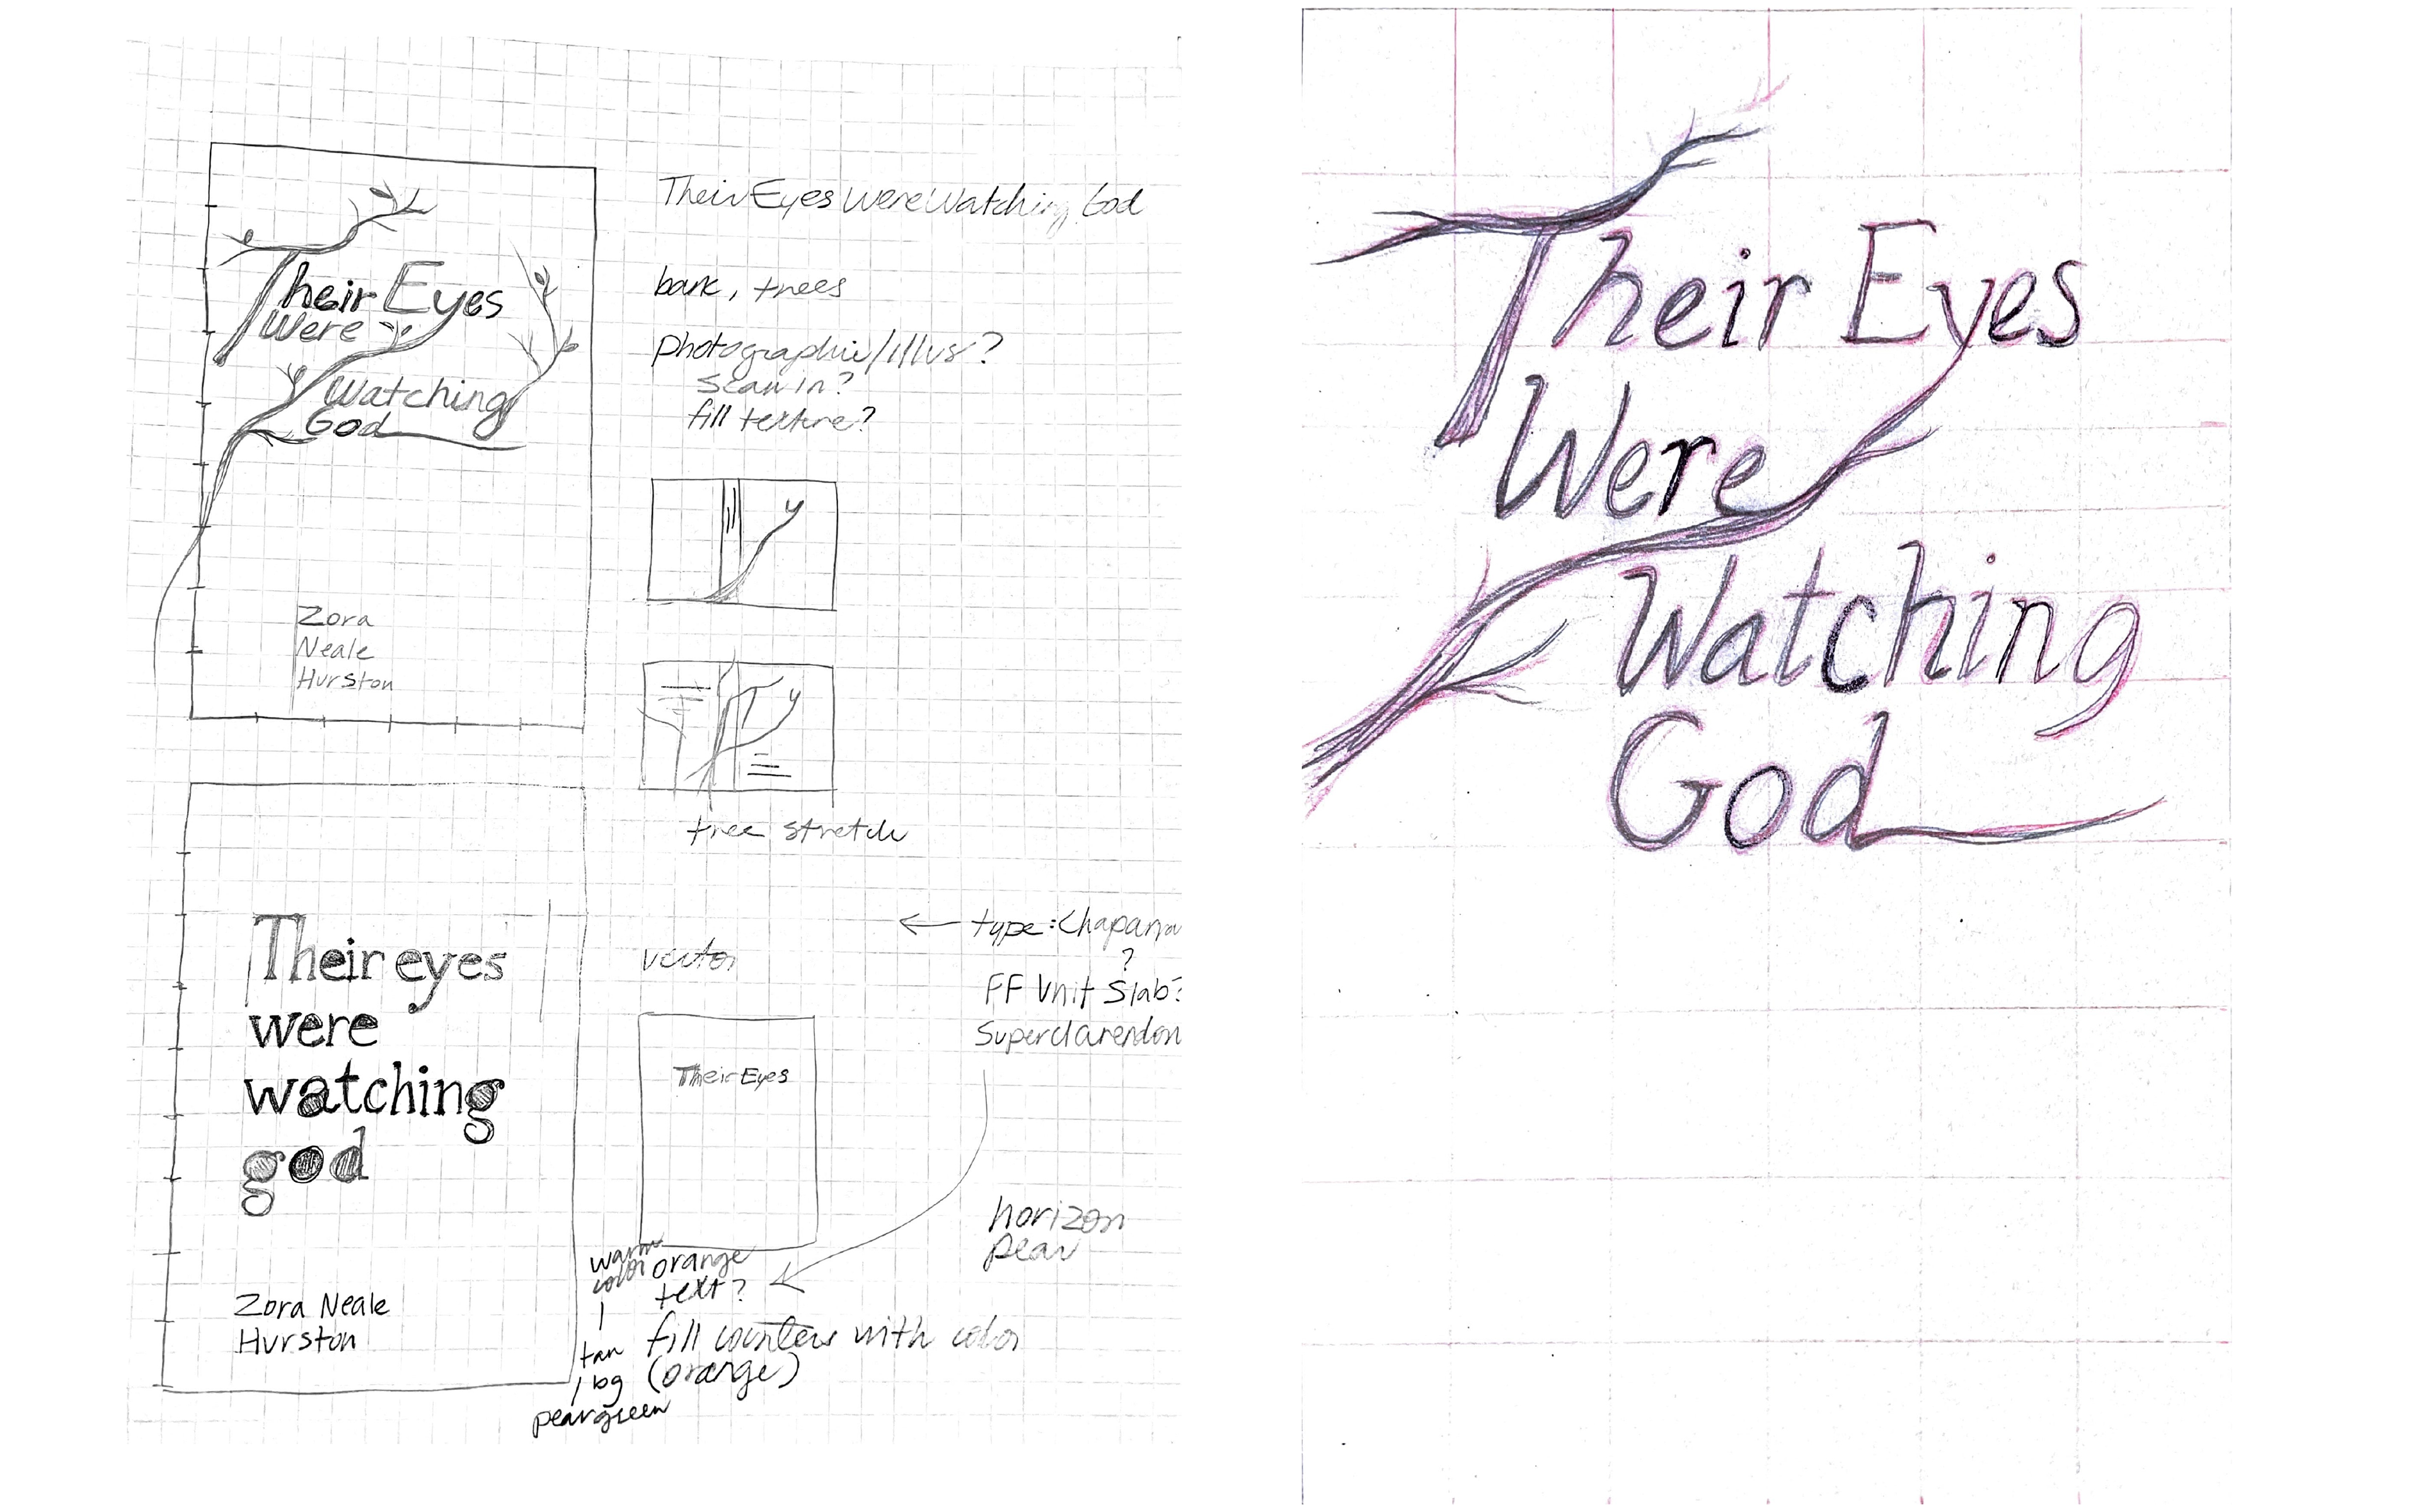 Their Eyes
Were
Watching
God
Zora
Neale
Hurston
Their Eyes Were Watching God
bark, trees
photographic/illus?
scan in?
fill texture?
y
T y
tree stretch
Their eyes
were
watching
god
Zora Neale
Hurston
vector
Their Eyes
← type: Chaparra
?
FF Unit Slab?
Superclarendon
horizon
pear
warm
color
orange
text?
fill counters with color
(orange)
tan
bg
peargreen
Their Eyes
Were
Watching
God